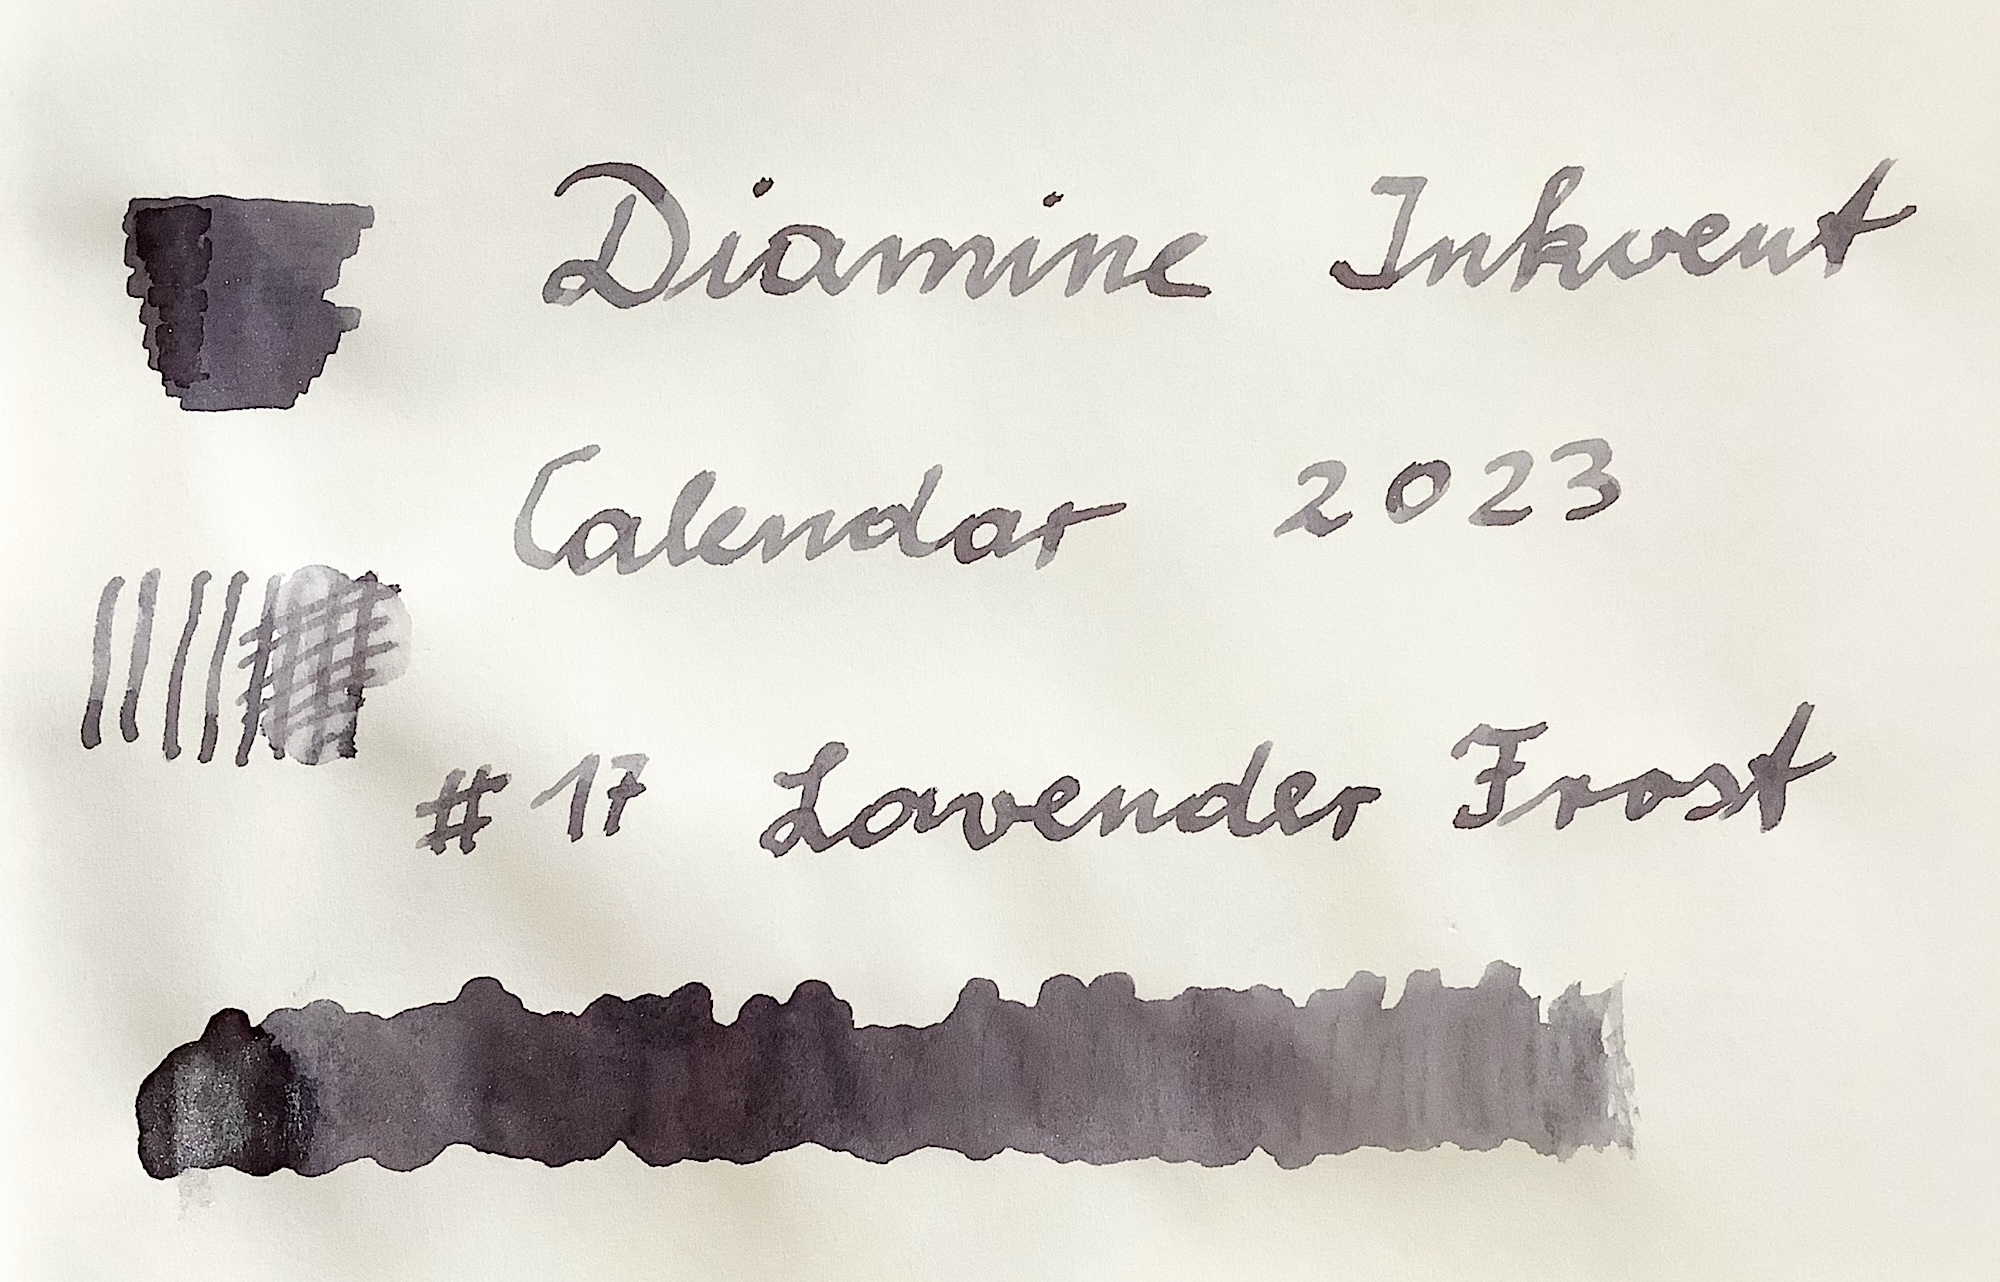 Diamine Inkvent
Calendar 2023
# 17 Lavender Frost